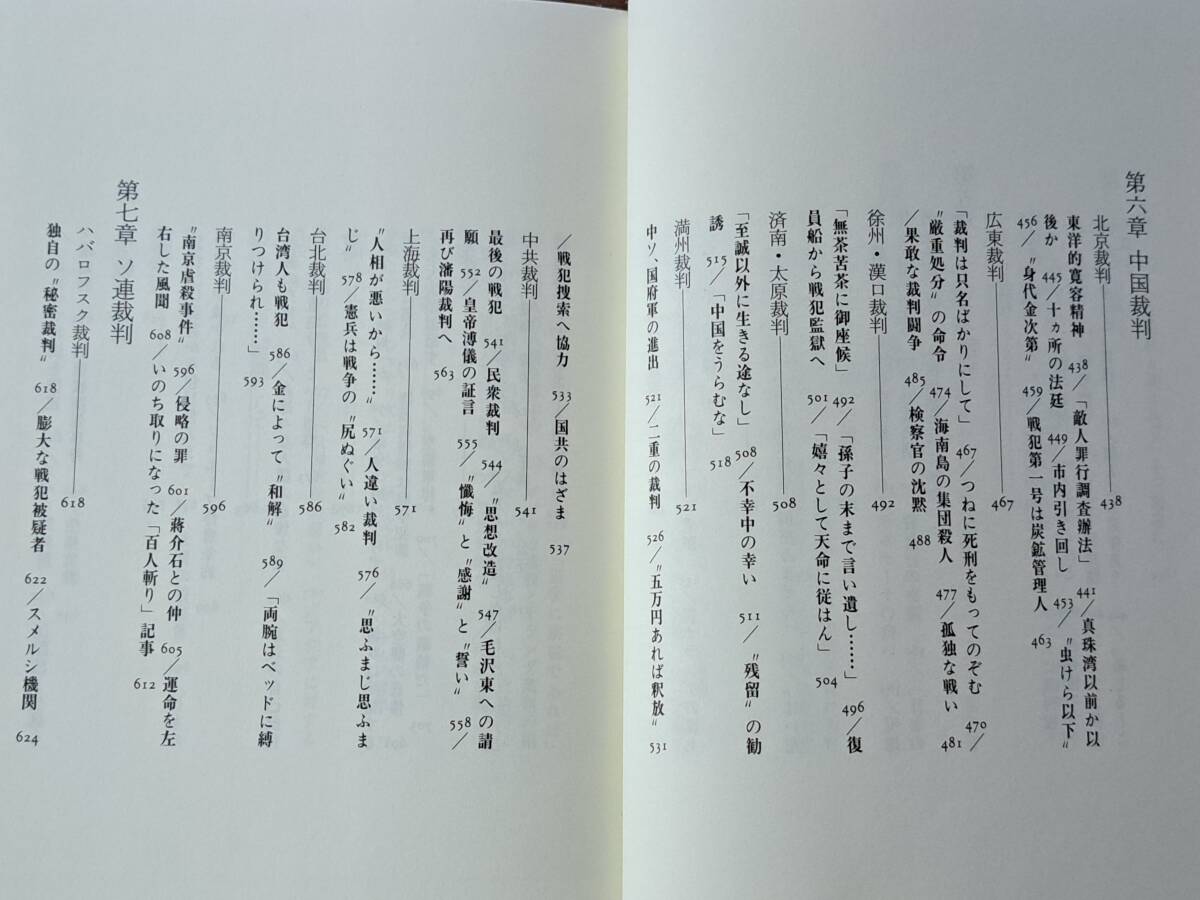 第六章 中国裁判
北京裁判 438
東洋的寛容精神 438/「敵人罪行調査辦法」 441/真珠湾以前か以
後か 445/十ヵ所の法廷 449/市内引き回し 453/〝虫けら以下〟
456/〝身代金次第〟 459/戦犯第一号は炭鉱管理人 463
広東裁判 467
「裁判は只名ばかりにして」 467/つねに死刑をもってのぞむ 470/
〝厳重処分〟の命令 474/海南島の集団殺人 477/孤独な戦い 481
/果敢な裁判闘争 485/検察官の沈黙 488
徐州・漢口裁判 492
「無茶苦茶に御座候」 492/「孫子の末まで言い遺し……」 496/復
員船から戦犯監獄へ 501/「嬉々として天命に従はん」 504
済南・太原裁判 508
「至誠以外に生きる途なし」 508/不幸中の幸い 511/〝残留〟の勧
誘 515/「中国をうらむな」 518
満州裁判 521
中ソ、国府軍の進出 521/二重の裁判 526/〝五万円あれば釈放〟 531
/戦犯捜索へ協力 533/国共のはざま 537
中共裁判 541
最後の戦犯 541/民衆裁判 544/〝思想改造〟 547/毛沢東への請
願 552/皇帝溥儀の証言 555/〝懺悔〟と〝感謝〟と〝誓い〟 558/
再び瀋陽裁判へ 563
上海裁判 571
〝人相が悪いから……〟 571/人違い裁判 576/〝思ふまじ思ふま
じ〟 578/憲兵は戦争の〝尻ぬぐい〟 582
台北裁判 586
台湾人も戦犯 586/金によって〝和解〟 589/「両腕はベッドに縛
りつけられ……」 593
南京裁判 596
〝南京虐殺事件〟 596/侵略の罪 601/蔣介石との仲 605/運命を左
右した風聞 608/いのち取りになった「百人斬り」記事 612
第七章 ソ連裁判
ハバロフスク裁判 618
独自の〝秘密裁判〟 618/膨大な戦犯被疑者 622/スメルシ機関 624